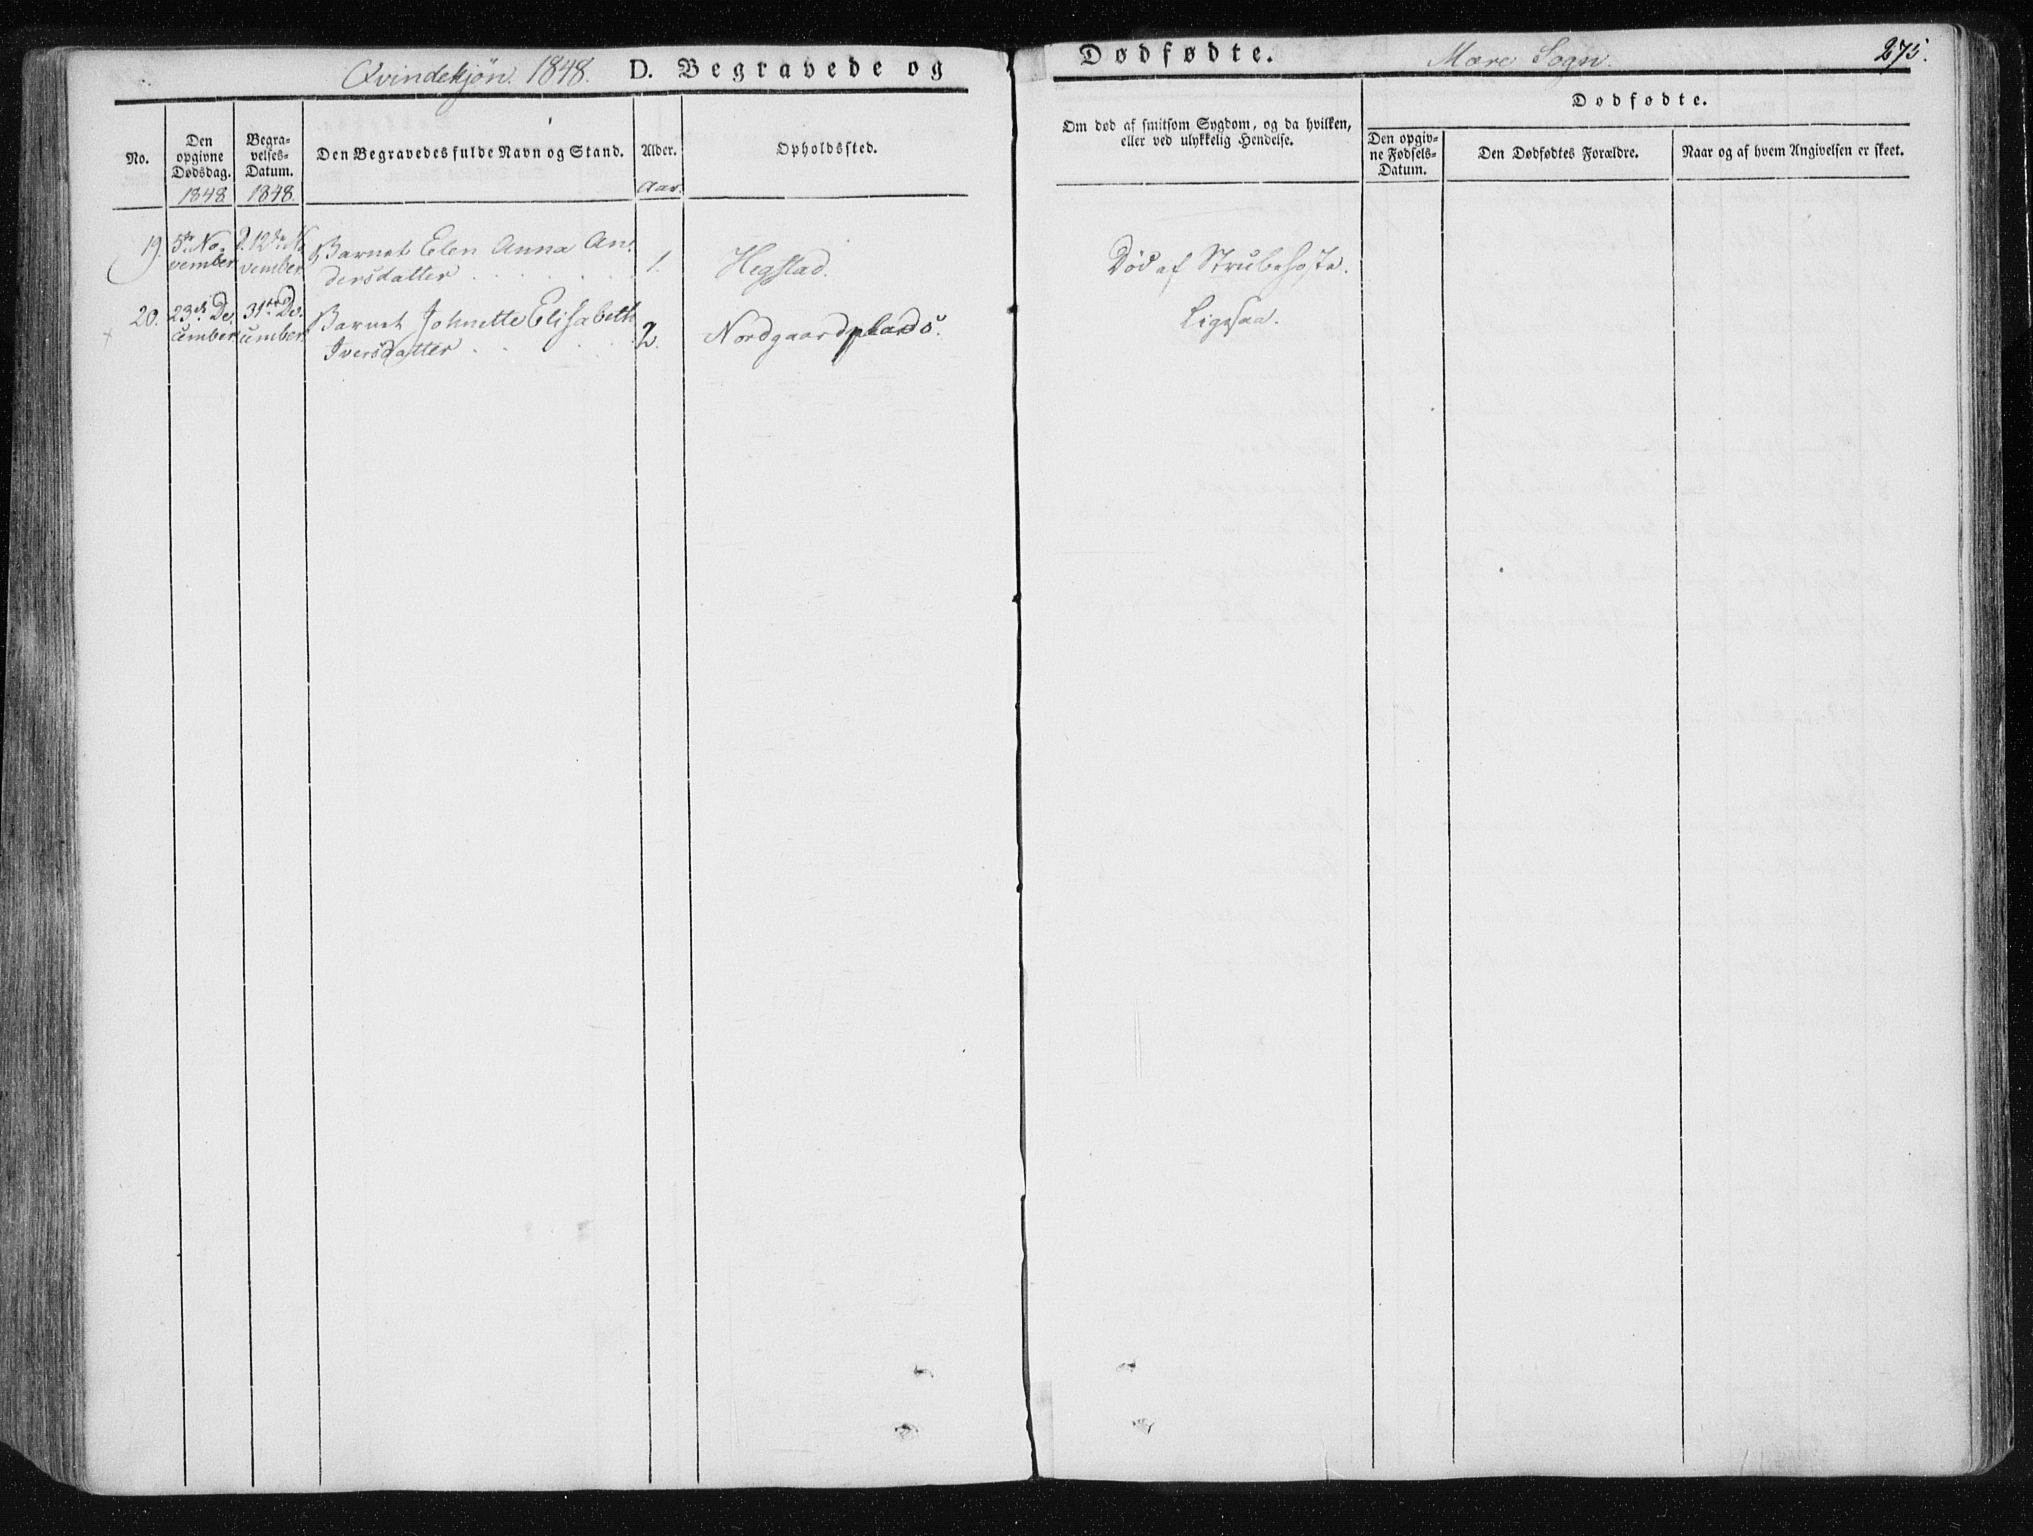 Qvindekjøn. 1848. D. Begravede og
Dødfødte. Mære Sogn. 275.
No.
Den
opgivne
Dødsdag.
1848
Begra-
velses-
Datum.
1848.
Den Begravedes fulde Navn og Stand.
Alder.
Aar.
Opholdssted.
Om død af smitsom Sygdom, og da hvilken,
eller ved ulykkelig Hendelse.
Dødfødte.
Den opgiv-
ne Fødsels-
Datum.
Den Dødfødtes Forældre.
Naar og af hvem Angivelsen er skeet.
19. 5te No-
vember
12te No-
vember
Barnet Elen Anna An-
dersdatter
1.
Hegstad.
Død af Strubehoste.
20. 23de De-
cember
31te De-
cember
Barnet Johnette Elisabeth
Iversdatter
2.
Nordgaardplads.
Ligesaa.